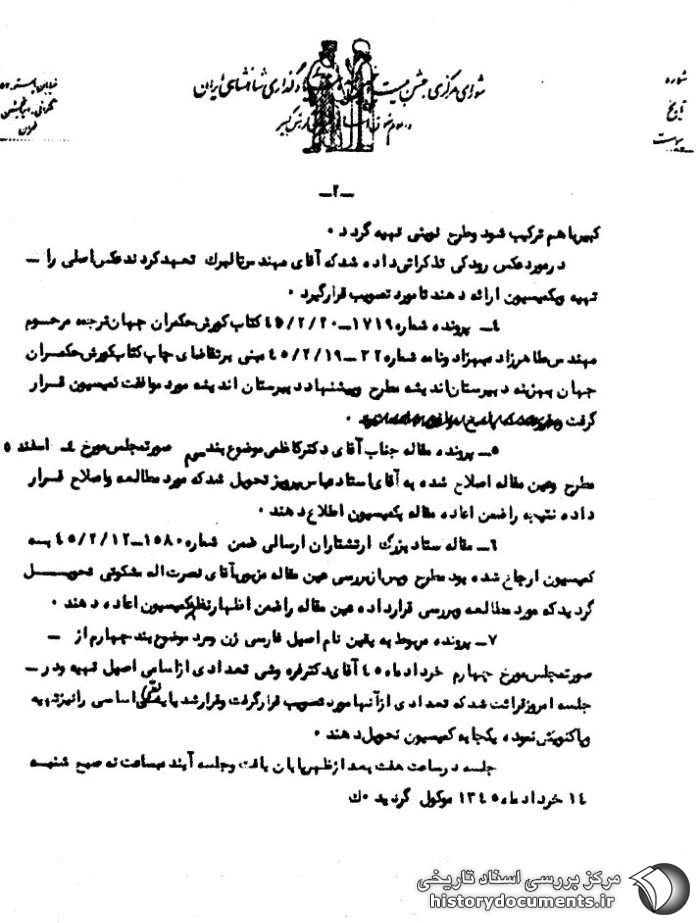 شورای مرکزی جشن
گذاری شاهنشاهی ایران
شماره
تاریخ
پیوست
خیابان
تهران
ــ۲ــ
کبیر باهم ترکیب شود وطرح نوینی تهیه گردد ۰
در مورد عکس رودکی تذکراتی داده شد که آقای مهندس تالبرگ تعهد کردند عکس اصلی را ــ
تهیه وبکمیسیون ارائه دهند تا مورد تصویب قرار گیرد ۰
۴ــ پرونده شماره ۱۷۱۹ــ۴۵/۲/۲۰ کتاب کورش حکمران جهان ترجمه مرحوم
مهندس طاهرزاد بهزاد ونامه شماره ۲۲ــ۴۵/۲/۱۹ مبنی بر تقاضای چاپ کتاب کورش حکمران
جهان بهزینه دبیرستان اندیشه مطرح وپیشنهاد دبیرستان اندیشه مورد موافقت کمیسیون قرار
گرفت
۵ــ پرونده مقاله جناب آقای دکتر کاظمی موضوع بند سوم صورتمجلس مورخ اسفند
مطرح وعین مقاله اصلاح شده به آقای استاد عباس پرویز تحویل شد که مورد مطالعه واصلاح قرار
داده نتیجه را ضمن اعاده مقاله بکمیسیون اطلاع دهند ۰
۶ــ مقاله ستاد بزرگ ارتشتاران ارسالی ضمن شماره ۱۵۸۰ــ۴۵/۲/۱۲ به
کمیسیون ارجاع شده بود مطرح وپس از بررسی عین مقاله مزبور بآقای نصرت اله مشکوتی تحویل
گردید که مورد مطالعه وبررسی قرار داده عین مقاله را ضمن اظهار نظر بکمیسیون اعاده دهند ۰
۷ــ پرونده مربوط به یقین نام اصیل فارسی زن ومرد موضوع بند چهارم از ــ
صورتمجلس مورخ چهارم خرداد ماه ۴۵ آقای دکتر فره وشی تعدادی از اسامی اصیل تهیه ودر ــ
جلسه امروز قرائت شد که تعدادی از آنها مورد تصویب قرار گرفت وقرار شد بابقیه اسامی را نیز تهیه
وپاکنویس نموده یکجا به کمیسیون تحویل دهند ۰
جلسه در ساعت هفت بعد از ظهر پایان یافت وجلسه آینده بساعت نه صبح شنبه
۱۴ خرداد ماه ۱۳۴۵ موکول گردید ۰ك
مرکز بررسی اسناد تاریخی
historydocuments.ir